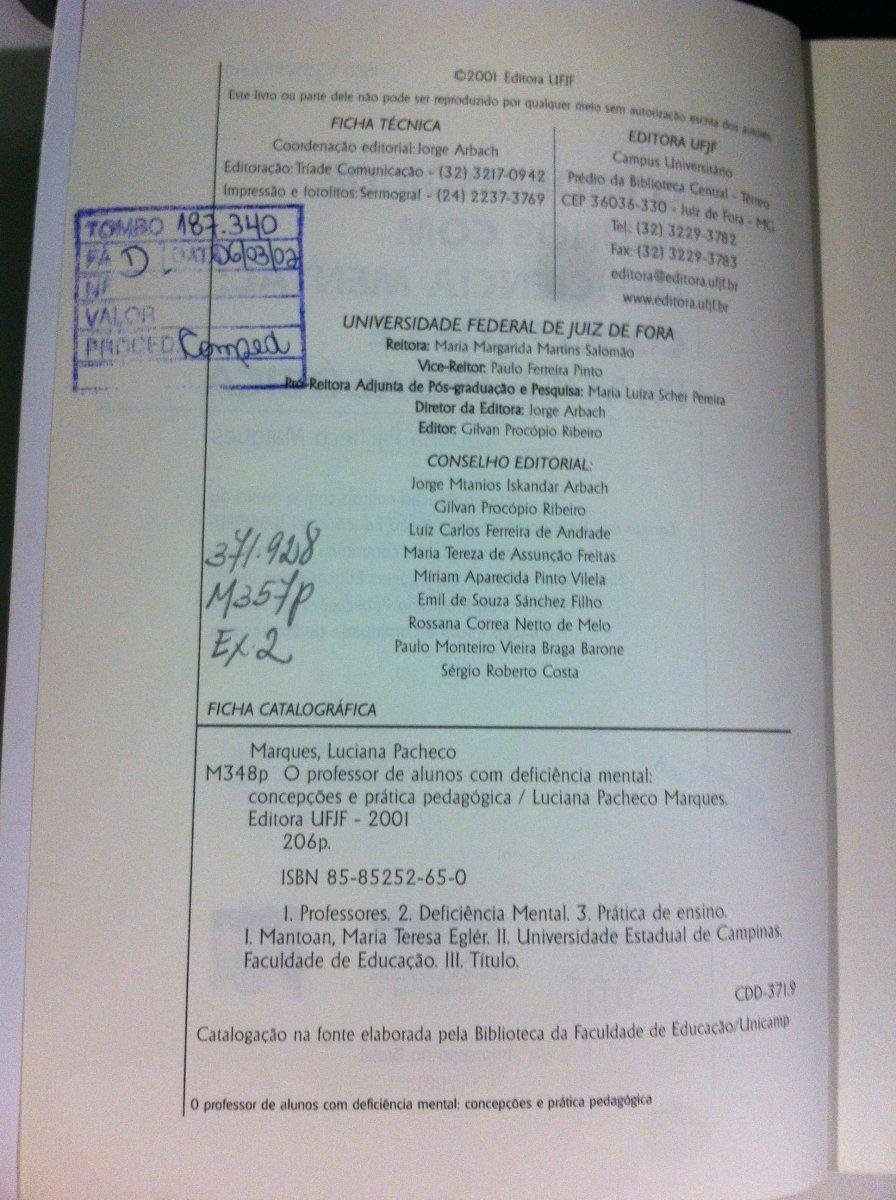 ©2001 Editora UFJF
Este livro ou parte dele não pode ser reproduzido por qualquer meio sem autorização escrita dos autores.
FICHA TÉCNICA
Coordenação editorial: Jorge Arbach
Editoração: Tríade Comunicação - (32) 3217-0942
Impressão e fotolitos: Sermograf - (24) 2237-3769
EDITORA UFJF
Campus Universitário
Prédio da Biblioteca Central - Térreo
CEP 36036-330 - Juiz de Fora - MG
Tel.: (32) 3229-3782
Fax: (32) 3229-3783
editora@editora.ufjf.br
www.editora.ufjf.br
TOMBO 187.340
FA D DATA 06/03/02
NF
VALOR
PROCED. Comped
UNIVERSIDADE FEDERAL DE JUIZ DE FORA
Reitora: Maria Margarida Martins Salomão
Vice-Reitor: Paulo Ferreira Pinto
Pró-Reitora Adjunta de Pós-graduação e Pesquisa: Maria Luíza Scher Pereira
Diretor da Editora: Jorge Arbach
Editor: Gilvan Procópio Ribeiro
CONSELHO EDITORIAL:
Jorge Mtanios Iskandar Arbach
Gilvan Procópio Ribeiro
Luiz Carlos Ferreira de Andrade
Maria Tereza de Assunção Freitas
Míriam Aparecida Pinto Vilela
Emil de Souza Sánchez Filho
Rossana Correa Netto de Melo
Paulo Monteiro Vieira Braga Barone
Sérgio Roberto Costa
371.928
M357p
Ex.2
FICHA CATALOGRÁFICA
Marques, Luciana Pacheco
M348p O professor de alunos com deficiência mental:
concepções e prática pedagógica / Luciana Pacheco Marques.
Editora UFJF - 2001
206p.
ISBN 85-85252-65-0
I. Professores. 2. Deficiência Mental. 3. Prática de ensino.
I. Mantoan, Maria Teresa Eglér. II. Universidade Estadual de Campinas.
Faculdade de Educação. III. Título.
CDD-371.9
Catalogação na fonte elaborada pela Biblioteca da Faculdade de Educação/Unicamp
O professor de alunos com deficiência mental: concepções e prática pedagógica